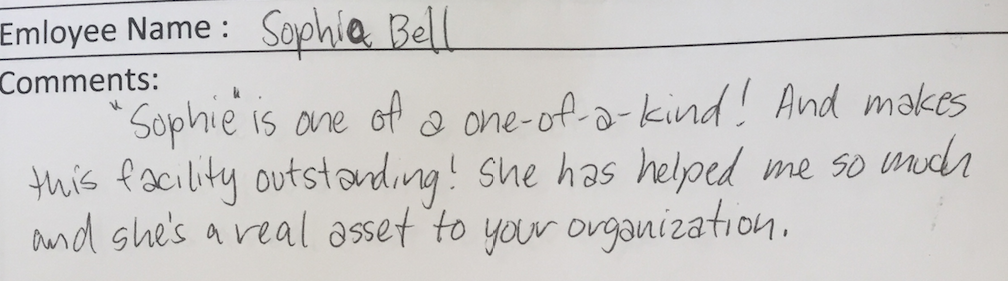 Emloyee Name : Sophia Bell
Comments:
"Sophie" is one of a one-of-a-kind! And makes
this facility outstanding! She has helped me so much
and she's a real asset to your organization.